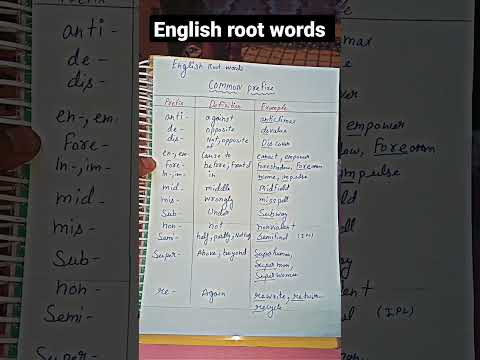 English root words
English Root words
COMMON prefixe
Prefix Definition Example
anti- against anticlimax
de- opposite devalue
dis- Not, opposite Discover
en-, em- Cause to enact, empower
Fore- before, front of foreshadow, Forearm
In-, im- in income, impulse
mid- middle Midfield
mis- wrongly misspell
Sub- Under Subway
non- not nonviolent
Semi- half, partly, Semifinal (IPL)
Super- Above, beyond Superhuman,
Superman,
Superwoman
re- Again rewrite, return,
recycle
anti-
de-
dis-
en-, em
Fore-
In-, im-
mid-
mis-
Sub-
non-
Semi-
Super-
max
empower
Forearm
mpulse
t
(IPL)